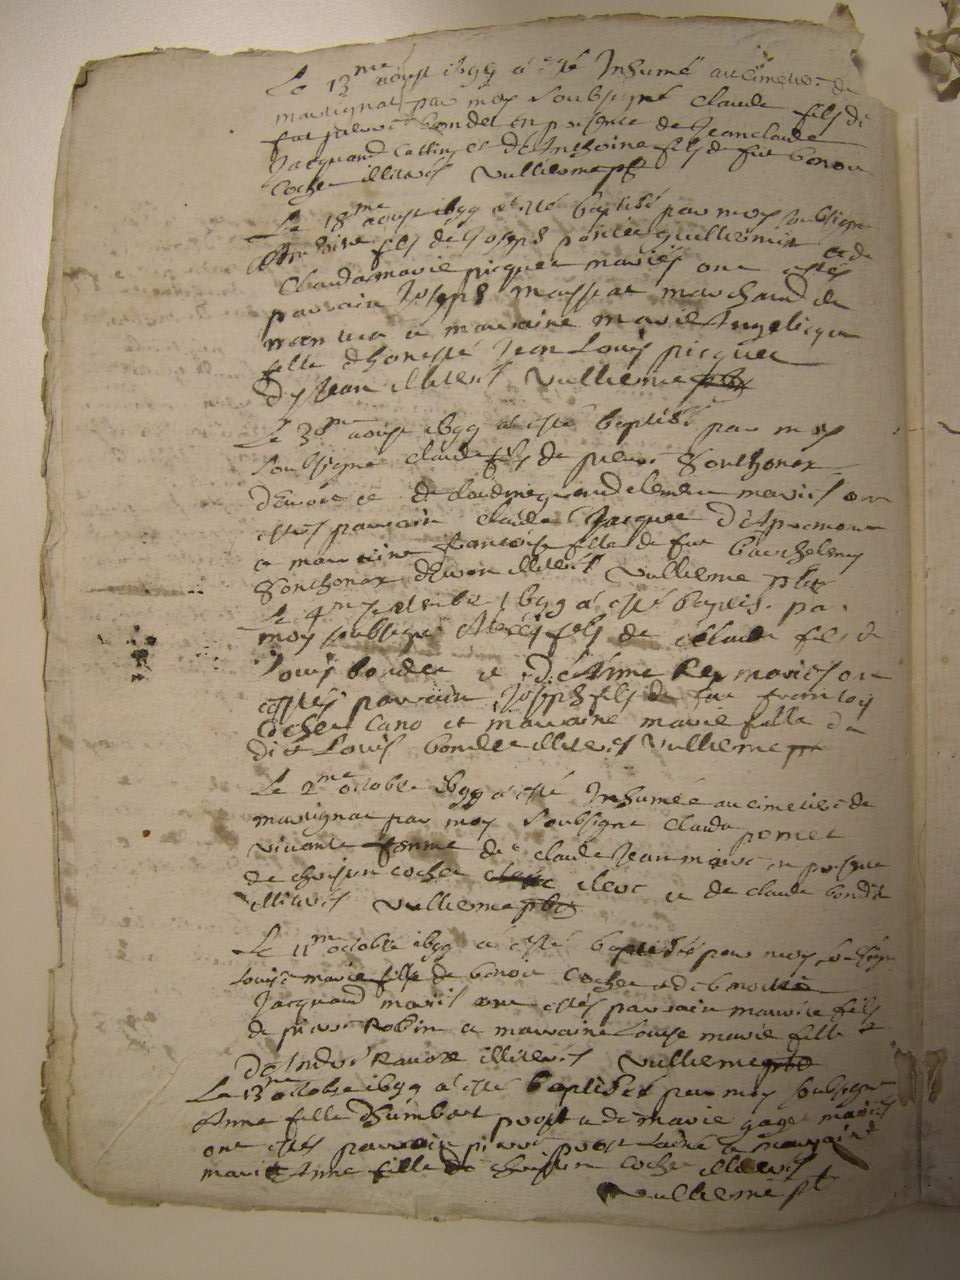 Le 13me aoust 1699 a esté Inhumé au cimetier de
martignat par moy soubsigné Claude fils de
fut pierre bondet en presence de Jeanclaude
Jacquand et de Anthoine fils de fut benoit
Cochet illiterés Vullierme pbr
Le 18me aoust 1699 a esté baptisé par moy soubsigné
Anthoine fils de Joseph poncet guillermin et de
Claudamarie picquet mariés ont estés
parrain Joseph massiat marchand de
nantua et marraine marie Angelicque
fille dhoneste Jean Louis picquet
dyJean illiterés Vullierme pbr
Le 30me aoust 1699 a esté baptisé par moy
soubsigné claude fils de pierre Gonthonex
et de mariés ont
estés parrain claude Jacquet
et marraine francoise fille de fut barthelemy
Gonthonex illiterés Vullierme pbr
Le 4me septembre 1699 a esté baptisé par
moy soubsigné Alexis fils de Claude fils de
Louis bondet et de Anne Rey mariés ont
estés parrain Joseph fils de fut francois
Cochet Cano et marraine marie fille du
dit Louis bondet illiterés Vullierme pbr
Le 2me octobre 1699 a esté Inhumée au cimetier de
martignat par moy soubsigné Clauda pernet
vivante femme de Claude Jean en presence
de Cochet clerc et de claude bondet
illiterés Vullierme pbr
Le 11me octobre 1699 a esté baptisée par moy soubsigné
Louise marie fille de benoit Cochet et de benoitte
Jacquand mariés ont estés parrain maurice fils
de pierre Robin et marraine Louise marie fille
de André illiterés Vullierme pbr
Le 13me octobre 1699 a esté baptisée par moy soubsigné
Anne fille dhumbert prost et de marie gaget mariés
ont estés parrain pierre prost et marraine
marie Anne fille de Cochet illiterés
Vullierme pbr